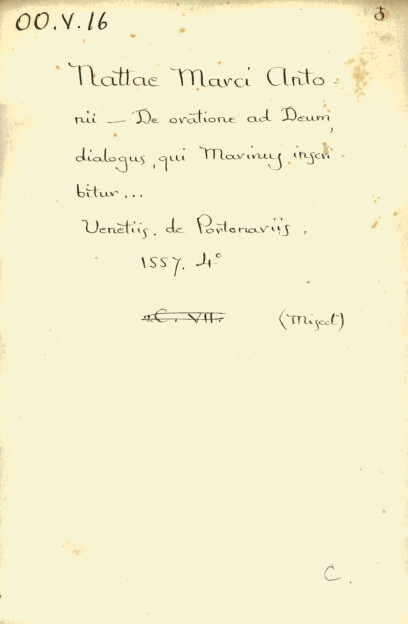 OO.V.16
Nattae Marci Anto-
nii — De oratione ad Deum,
dialogus, qui Marinus inscri-
bitur...
Venetiis. de Portonariis.
1557. 4°
C. VII. (Miscel)
C.